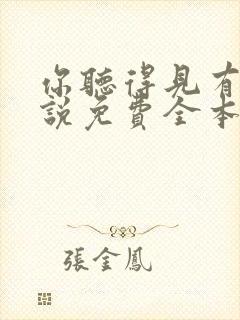 你聽得見有
說免費全本
張金鳳